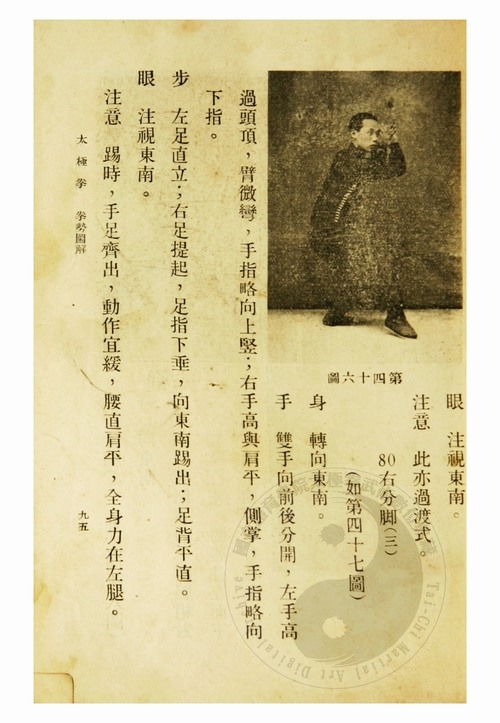 第四十六圖
眼 注視東南。
注意 此亦過渡式。
80右分脚(三)
(如第四十七圖)
身 轉向東南。
手 雙手向前後分開,左手高
過頭頂,臂微彎,手指略向上豎;右手高與肩平,側掌,手指略向
下指。
步 左足直立;右足提起,足指下垂,向東南踢出;足背平直。
眼 注視東南。
注意 踢時,手足齊出,動作宜緩,腰直肩平,全身力在左腿。
太極拳 拳勢圖解
九五
Tai-Chi Martial Art Digital